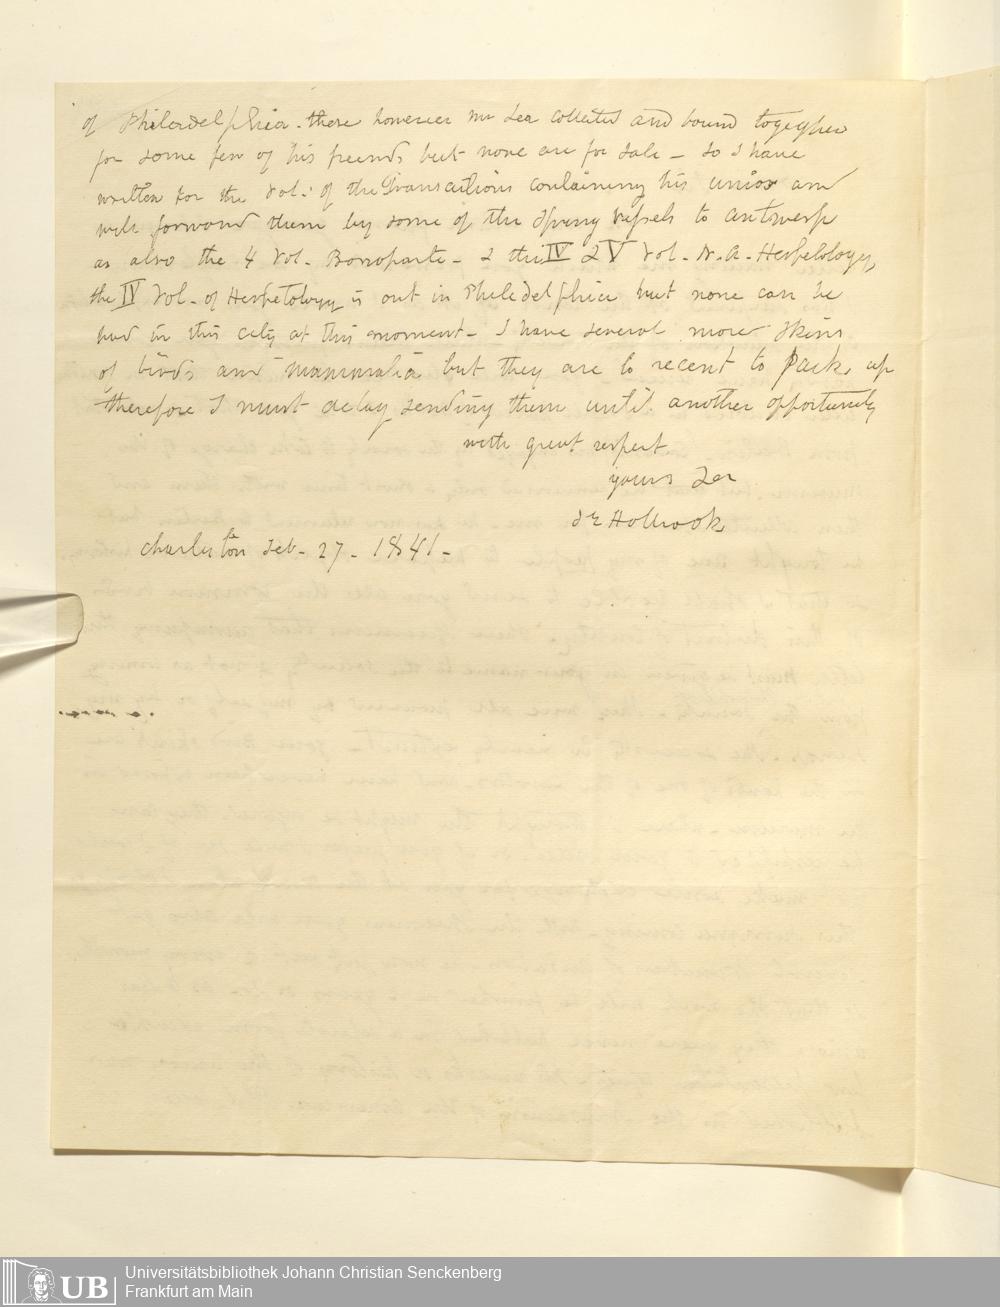 of Philadelphia - these however Mr Lea collected and bound togegher
for some few of his freends but none are for sale - so I have
written for the Vol: of the Transactions containing his unios and
will forward them by some of the Spring Vessels to antwerp
as also the 4 Vol. Bonoparte - & the IV & V Vol. N. A. Herpetology,
the IV Vol. of Herpetology is out in Philedelphia but none can be
had in this city at this moment - I have several more skins
of birds and mammalia but they are to recent to pack up
therefore I must delay sending them until another opportunity
with great respect
yours
J E Holbrook
Charleston Feb - 27 - 1841 -
Universitätsbibliothek Johann Christian Senckenberg
Frankfurt am Main
UB